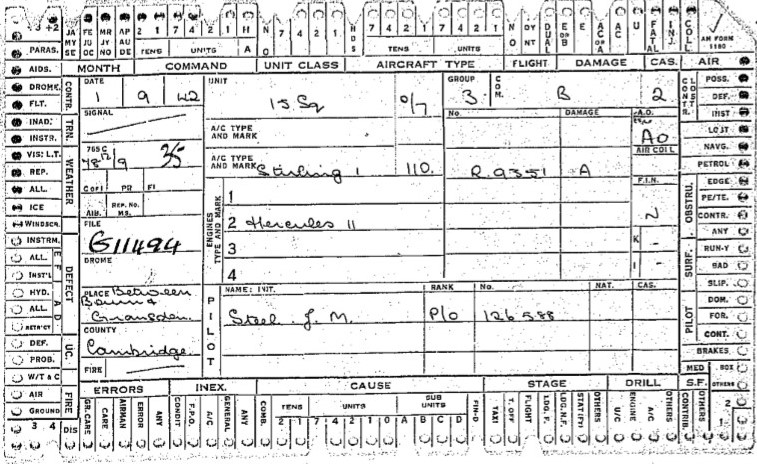 3 +2 JA MY SE FE JU OC MR JY NO AP AU DE 2 1 7 4 2 1 H NO 7 4 2 1 HDS 7 4 2 1 7 4 2 1 NO DY NT DUAL E OR B E AC OR A AC U FATAL INJ. COLL. AM FORM 1180
PARAS. TENS UNITS A TENS UNITS
AIDS. MONTH COMMAND UNIT CLASS AIRCRAFT TYPE FLIGHT DAMAGE CAS. AIR
DROME. CONTR. DATE UNIT GROUP COM. POSS.
FLT. 1 9 42 15 Sq 0/7 3 B 2 DEF.
INAD. TRN. SIGNAL No. DAMAGE A.O. INST
INSTR. A/C TYPE AND MARK AO LOST
VIS: L.T. WEATHER 765 C AIR COLL NAVG.
REP. 35 A/C TYPE AND MARK Stirling 1 110. R.9351 A PETROL
ALL. Cof1 PR FI F.I.N. OBSTRU. EDGE
ICE AIB. REP. No. MS. 1 PE/TE.
WINDSCR. FILE ENGINES TYPE AND MARK 2 Hercules 11 N CONTR.
INSTRM. DEFECT G11494 3 K - ANY
ALL. DROME 4 I - SURF. RUN-Y
INST'L BAD
HYD. PLACE Between PILOT NAME: INIT. RANK No. NAT. CAS. SLIP.
ALL. Bourn & Steel. J. M. P/o 126588 PILOT DOM.
RETR'CT Gransden. FOR.
DEF. UC. COUNTY CONT.
PROB. Cambridge. BRAKES
W/T & C FIRE MED BOX
AIR FIRE ERRORS INEX. CAUSE STAGE DRILL S.F. OTHERS
GROUND GR.CARE CARE AIRMAN ERROR ANY CONDIT F.P.O. A/C GENERAL ANY COMB. TENS UNITS SUB UNITS FIN-D TAXI T. OFF FLIGHT LDG. F. LDG.N.F. STAT(FY) OTHERS U/C ENGINE A/C OTHERS CONTRIB. OTHERS 2
3 4 DIS 2 1 7 4 2 1 0 A B C D 1